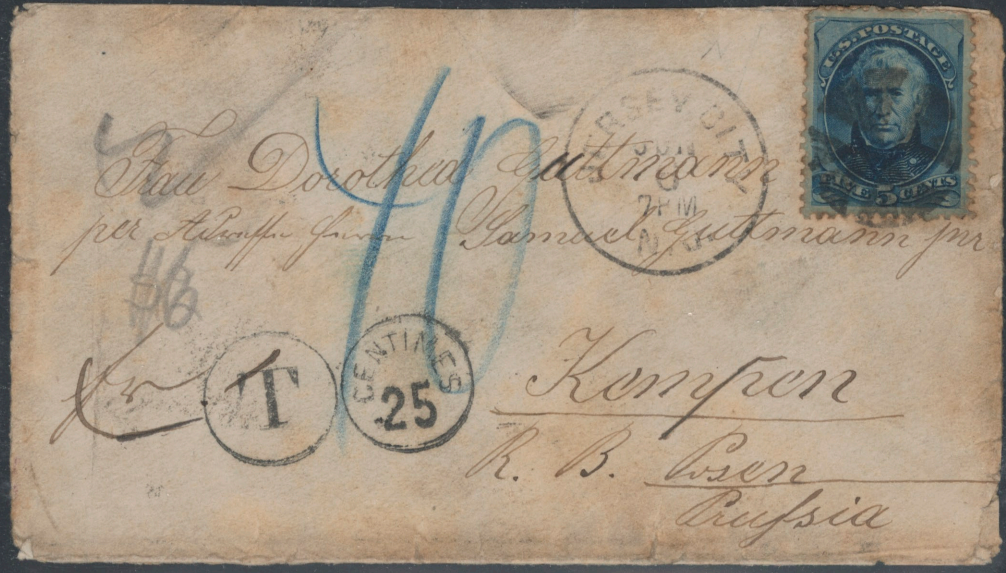 U.S. POSTAGE
FIVE 5 CENTS
JERSEY CITY
JUN
7PM
N.J.
Frau Dorothea Guttmann
per Adresse Herrn Samuel Guttmann jnr
40
T
CENTIMES
25
Kempen
R. B. Posen
Prussia